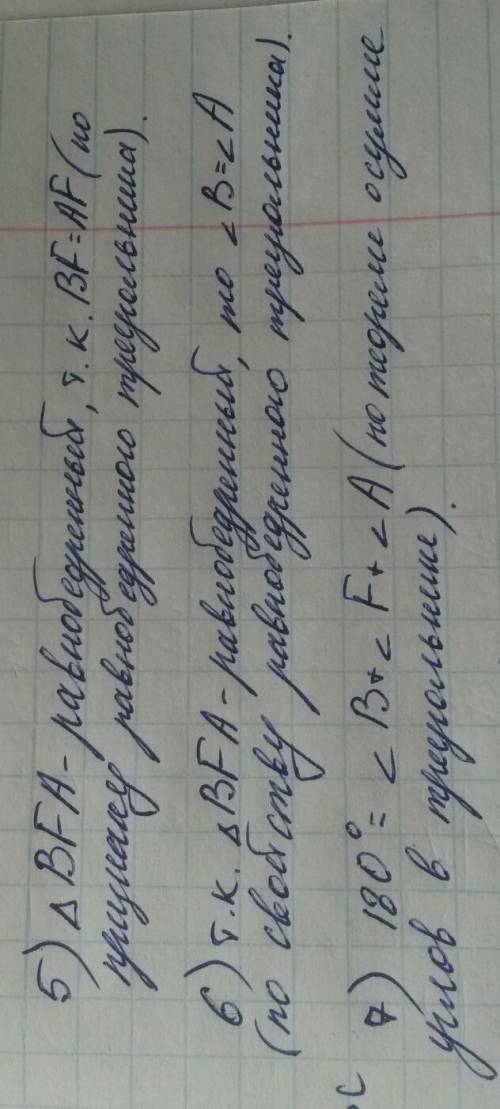 5) △ BFA - равнобедренный, т.к. BF = AF (по
признаку равнобедренного треугольника).
6) т.к. △ BFA - равнобедренный, то ∠B=∠A
(по свойству равнобедренного треугольника).
7) 180° = ∠B+∠F+∠A (по теореме о сумме
углов в треугольнике).